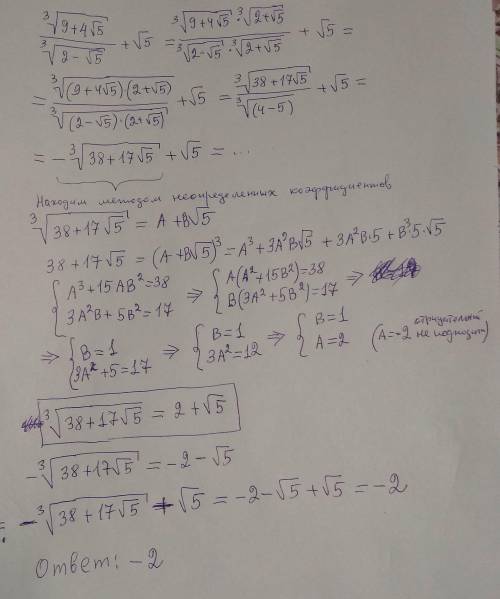 ∛(9+4√5) / ∛(2-√5) + √5 = ∛(9+4√5) · ∛(2+√5) / ∛(2-√5) · ∛(2+√5) + √5 =
= ∛((9+4√5)·(2+√5)) / ∛((2-√5)·(2+√5)) + √5 = ∛(38+17√5) / ∛(4-5) + √5 =
= -∛(38+17√5) + √5 = ...
Находим методом неопределенных коэффициентов
∛(38+17√5) = A+B√5
38+17√5 = (A+B√5)³ = A³+3A²B√5 + 3A²B·5 + B³5·√5
{ A³+15AB²=38 ; 3A²B+5B²=17 ⇒ { A(A²+15B²)=38 ; B(3A²+5B²)=17 ⇒
⇒ { B=1 ; 3A²+5=17 ⇒ { B=1 ; 3A²=12 ⇒ { B=1 ; A=2 (A=-2 отрицательный не подходит)
∛(38+17√5) = 2+√5
-∛(38+17√5) = -2-√5
-∛(38+17√5) + √5 = -2-√5+√5 = -2
Ответ: -2